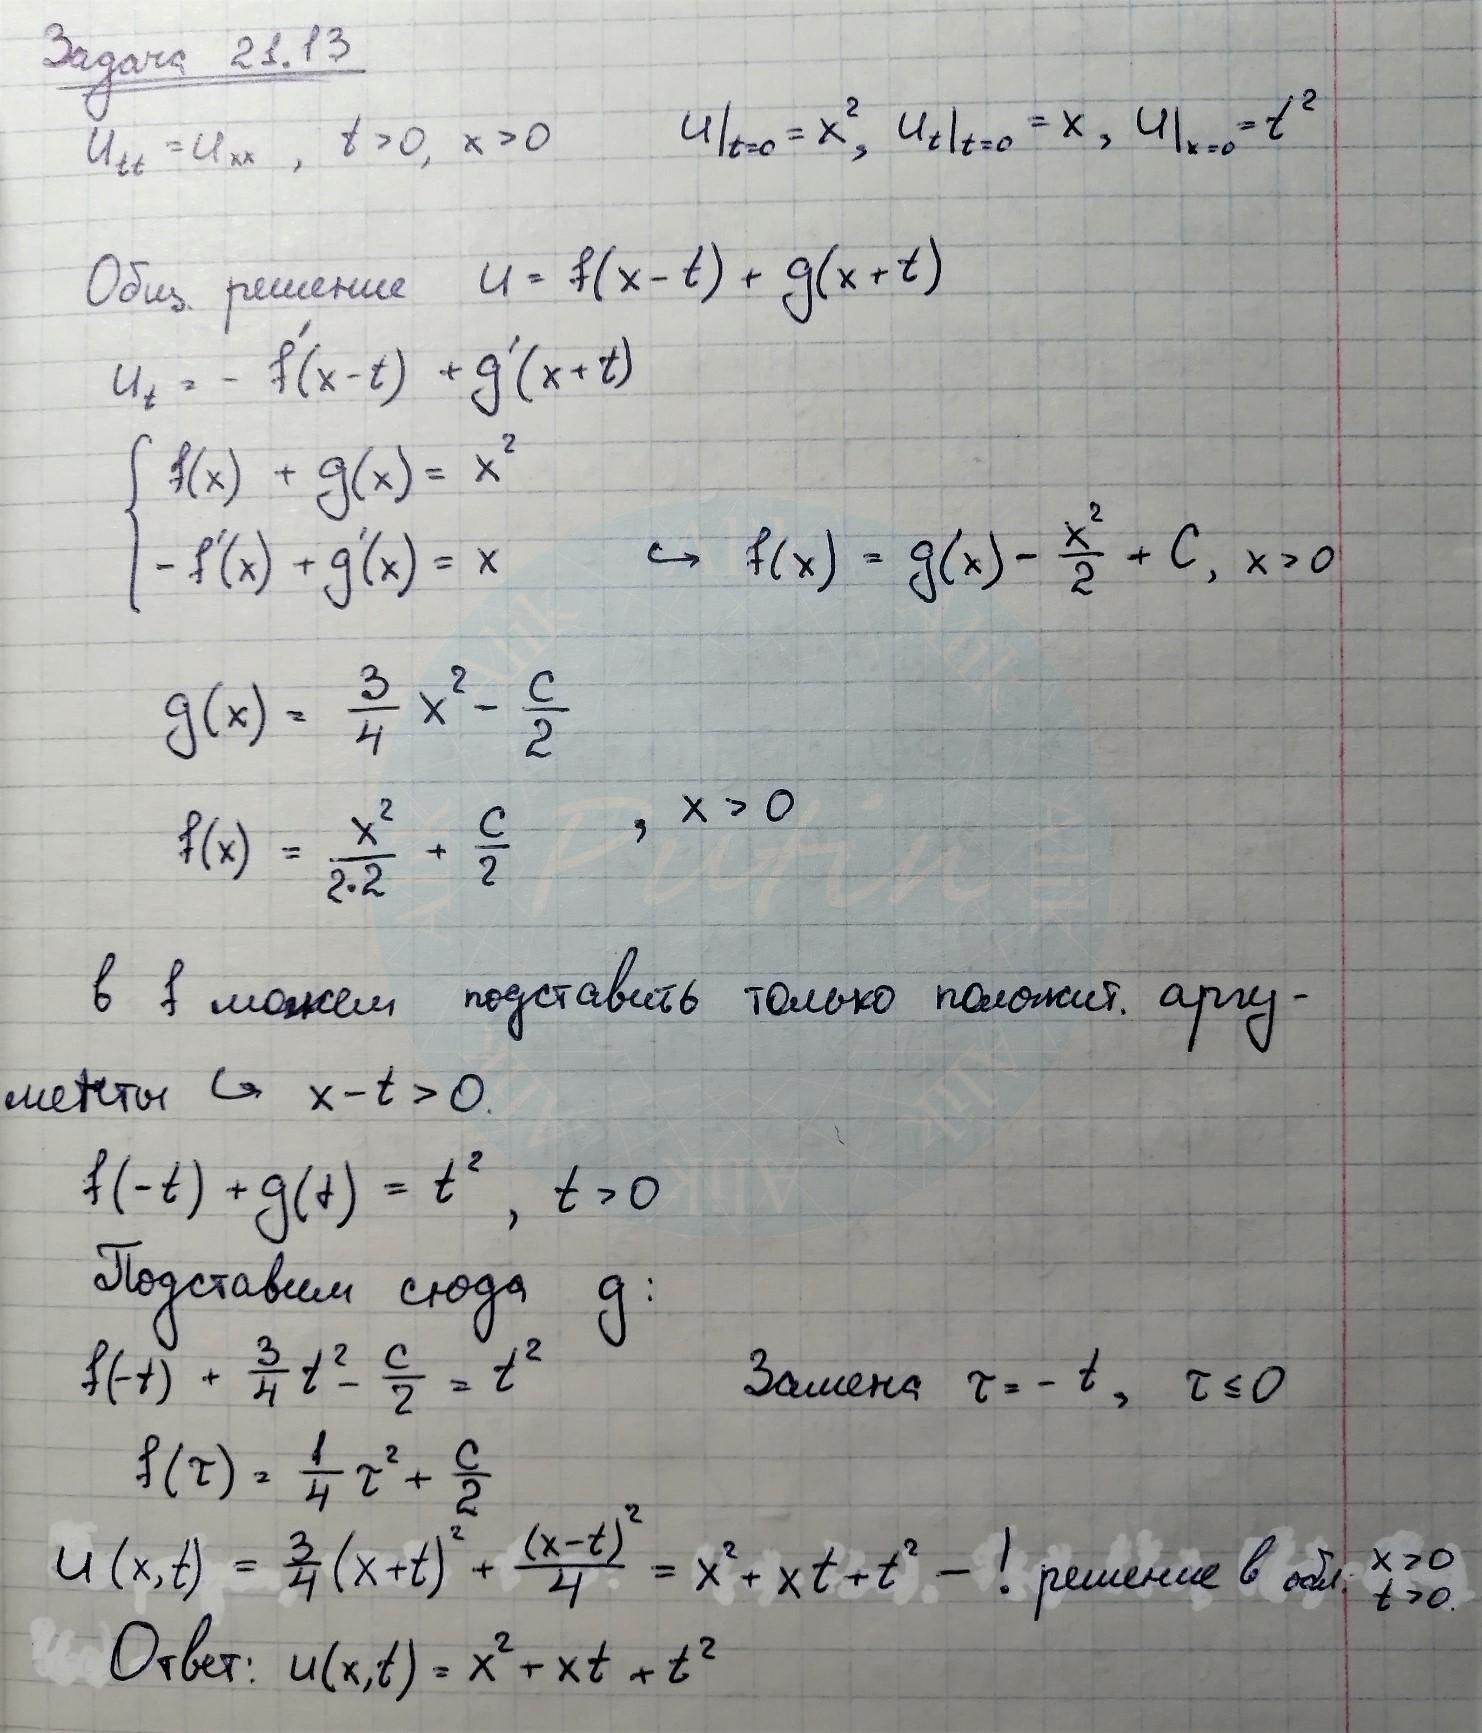 Задача 21.13
u_tt = u_xx , t > 0, x > 0 u|_t=0 = x², u_t|_t=0 = x, u|_x=0 = t²
Общ. решение u = f(x-t) + g(x+t)
u_t = - f'(x-t) + g'(x+t)
f(x) + g(x) = x²
-f'(x) + g'(x) = x ↪ f(x) = g(x) - x²/2 + C, x > 0
g(x) = 3/4 x² - C/2
f(x) = x²/2·2 + C/2 , x > 0
в f можем подставить только положит. аргу-
менты ↪ x-t > 0.
f(-t) + g(t) = t² , t > 0
Подставим сюда g:
f(-t) + 3/4 t² - C/2 = t² Замена τ = - t, τ ≤ 0
f(τ) = 1/4 τ² + C/2
u(x,t) = 3/4 (x+t)² + (x-t)²/4 = x² + xt + t² - ! решение в обл. x > 0 t > 0.
Ответ: u(x,t) = x² + xt + t²
Putin
Alik
Alik
Alik
Alik
Alik
Alik
Alik
Alik